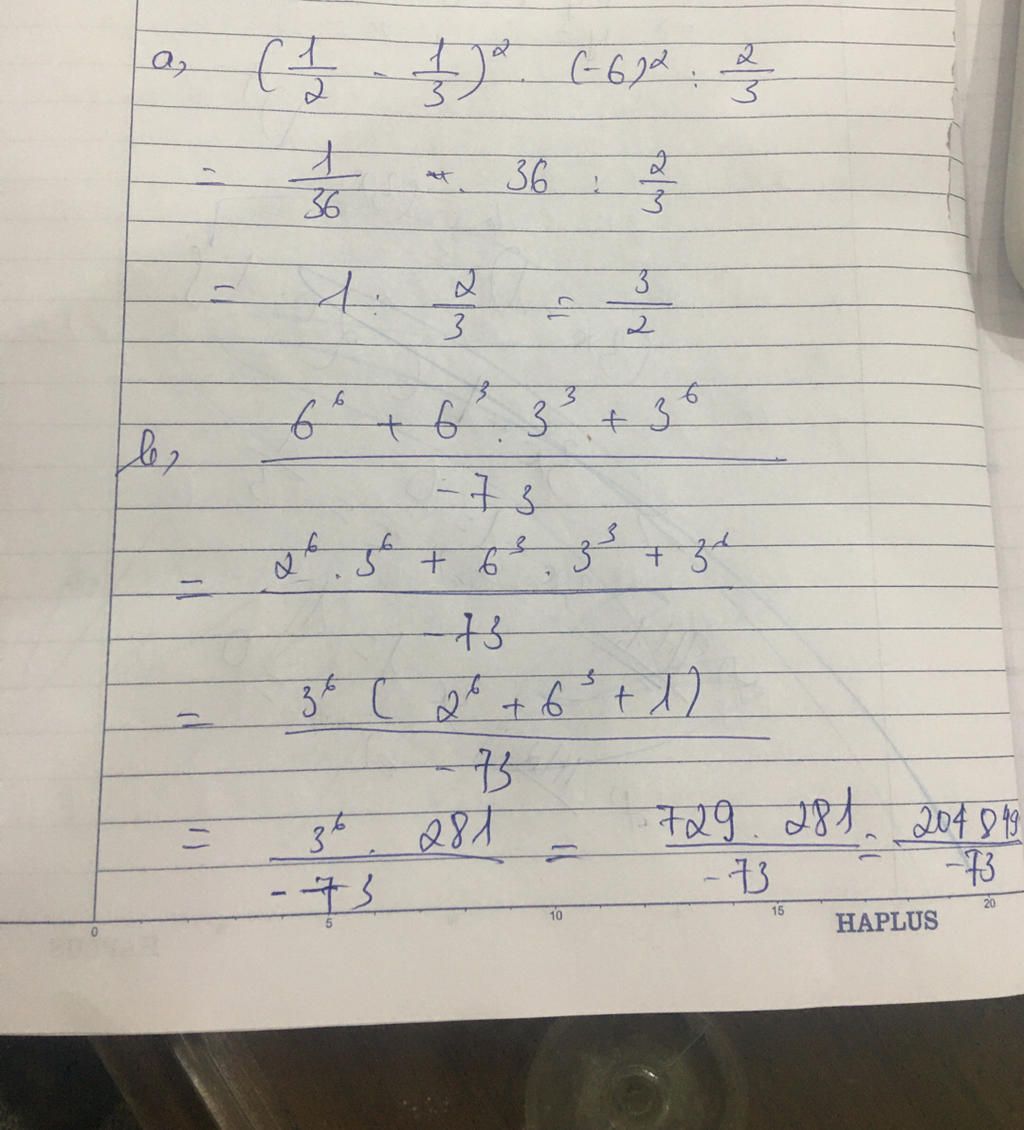 a, (1/2 - 1/3)² . (-6)² : 2/3
= 1/36 . 36 : 2/3
= 1 : 2/3 = 3/2
b, (6⁶ + 6³ . 3³ + 3⁶)/(-73)
= (2⁶ . 3⁶ + 6³ . 3³ + 3⁶)/(-73)
= 3⁶ ( 2⁶ + 6³ + 1)/(-73)
= (3⁶ . 281)/(-73) = (729 . 281)/(-73) = 204849/(-73)
0 5 10 15 20
HAPLUS